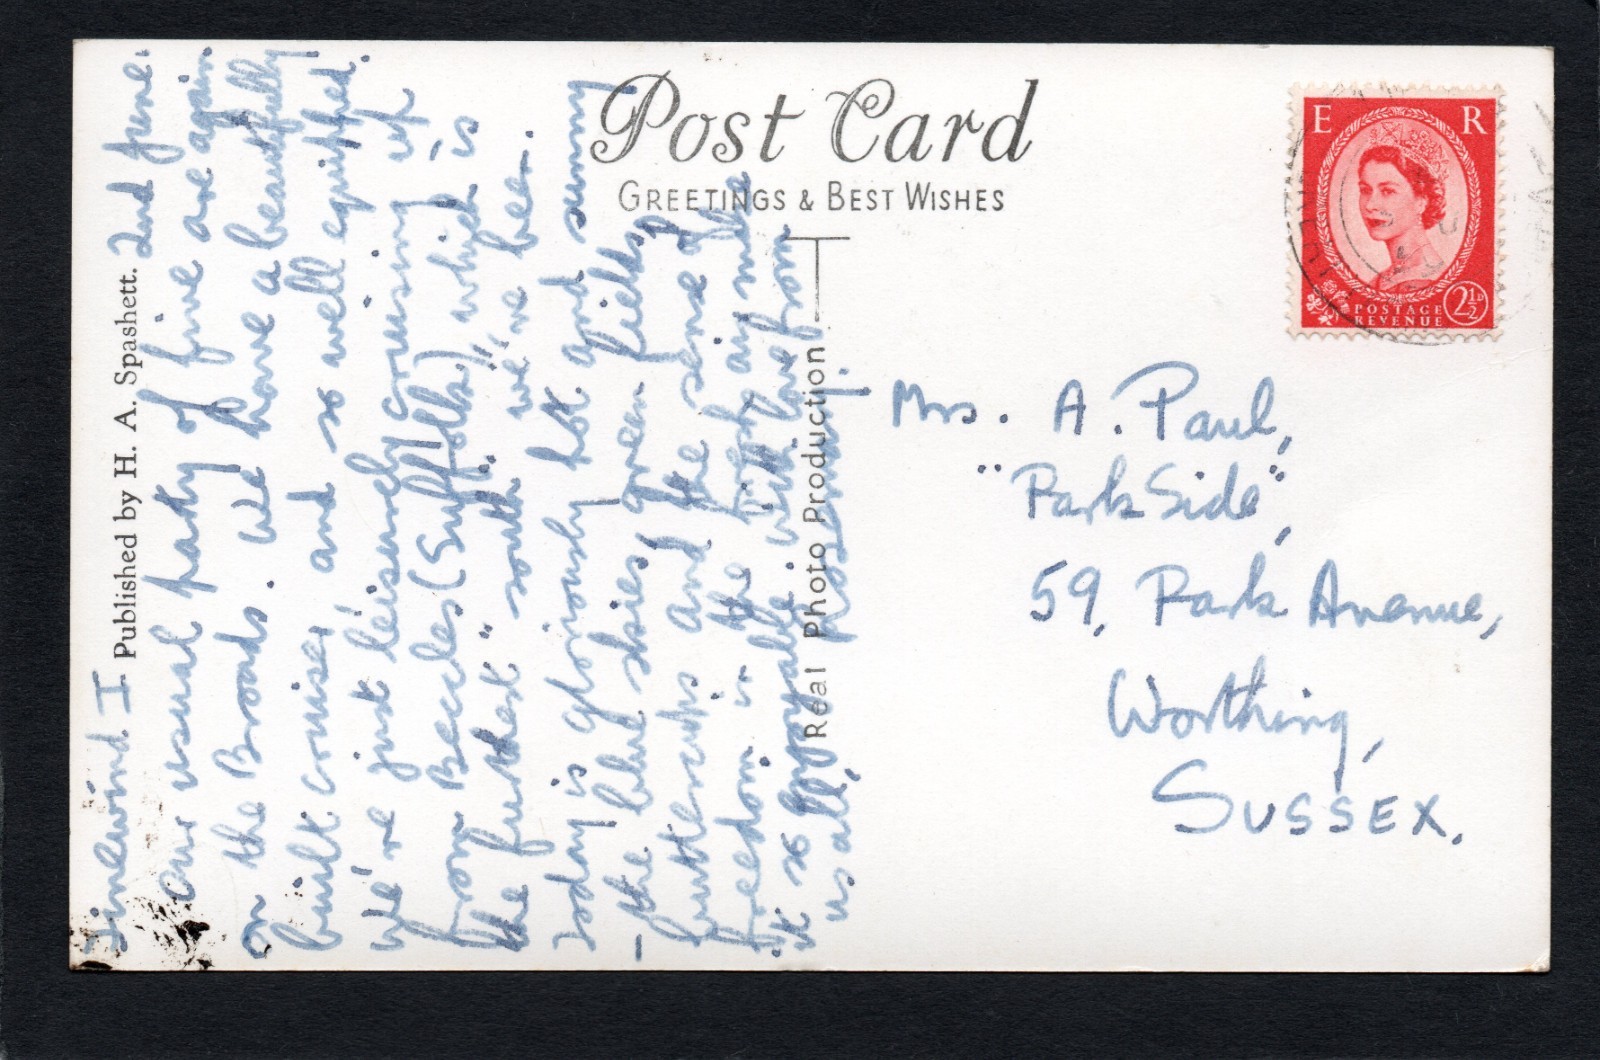 Post Card
GREETINGS & BEST WISHES
Published by H. A. Spashett.
Real Photo Production
E R
POSTAGE
REVENUE
2½D
Timewind I 2nd June.
Our usual party of five are again
on the Broads. We have a beautifully
built cruiser, and so well equipped.
We're just leisurely coming up
from Beccles (Suffolk), which is
the furthest "south" we've been.
Today is gloriously hot and sunny
- the blue skies green fields,
buttercups and the sense of
freedom in the fresh air make
it so enjoyable. With love from
us all, Rosemary.
Mrs. A. Paul,
"Park Side",
59, Park Avenue,
Worthing,
SUSSEX.